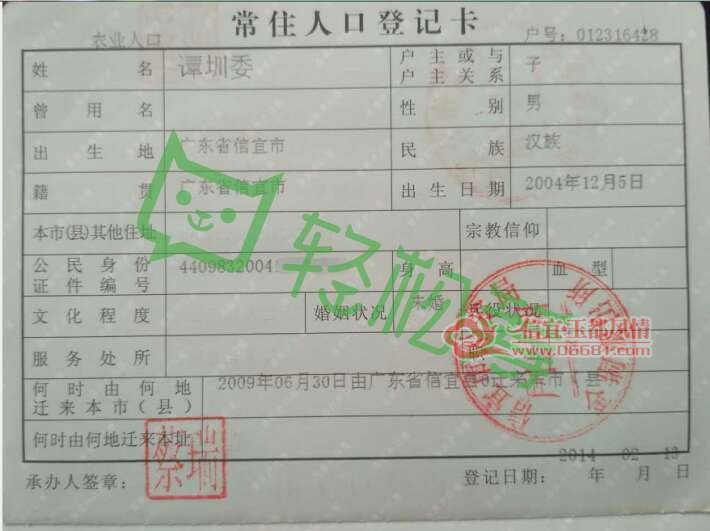 常住人口登记卡
农业人口
户号: 012316428
姓名 谭圳委 户主或与户主关系 子
曾用名 性别 男
出生地 广东省信宜市 民族 汉族
籍贯 广东省信宜市 出生日期 2004年12月5日
本市(县)其他住址 宗教信仰
公民身份证件编号 4409832004 身高 血型
文化程度 婚姻状况 未婚 兵役状况
服务处所
何时由何地迁来本市(县) 2009年06月30日由广东省信宜县
何时由何地迁来本址
承办人签章: 登记日期: 2014年02月13日
轻松筹
信宜玉都风情
www.06681.com